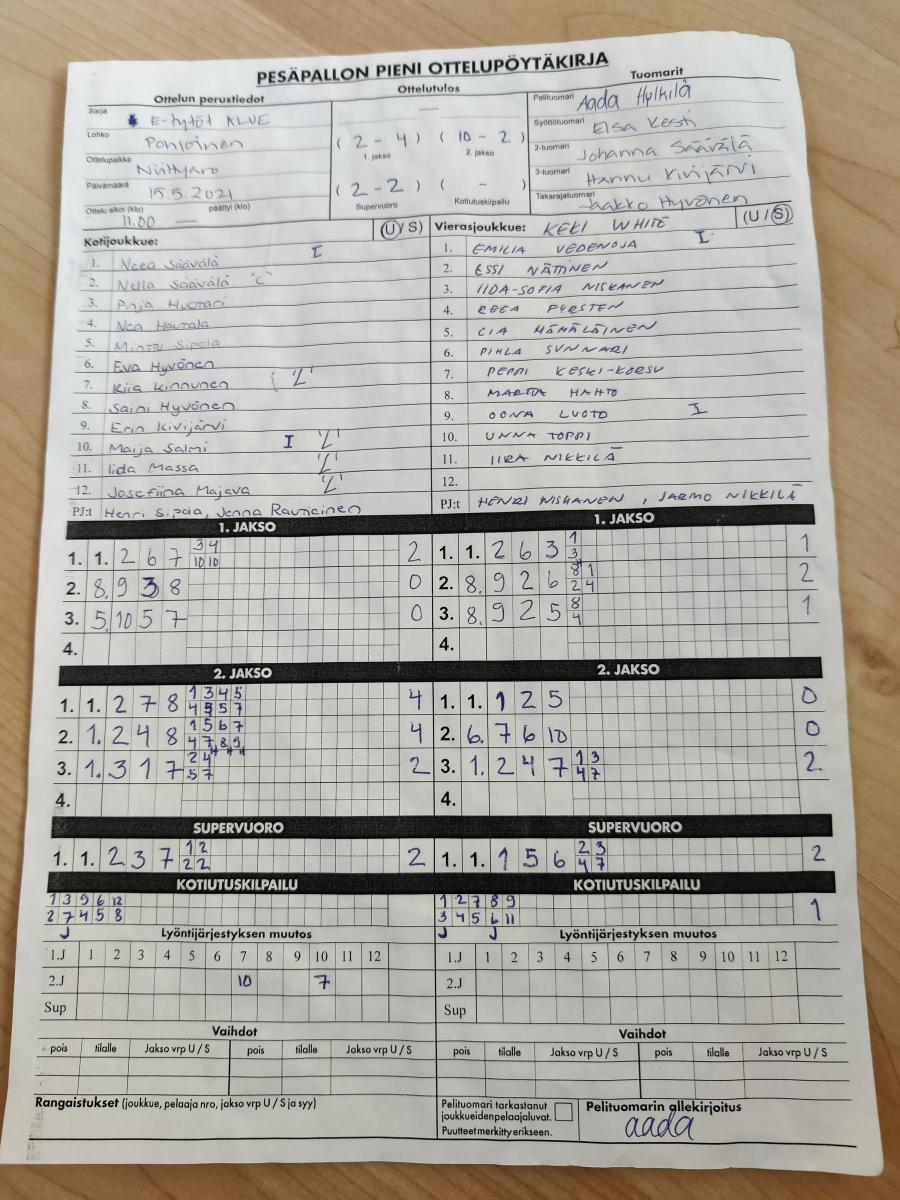 PESÄPALLON PIENI OTTELUPÖYTÄKIRJA
Ottelun perustiedot
Sarja E-tytöt ALUE
Lohko Pohjoinen
Ottelupaikka Niittyaro
Päivämäärä 15.5.2021
Ottelu alkoi (klo) 11.00 päättyi (klo)
Ottelutulos
(2-4) (10-2)
1. jakso 2. jakso
(2-2) ( - )
Supervuoro Kotiutuskilpailu
Tuomarit
Pelituomari Aada Hylkilä
Syöttötuomari Elsa Kesti
2-tuomari Johanna Säävälä
3-tuomari Hannu Kivijärvi
Takarajatuomari Jaakko Hyvönen
Kotijoukkue: (U/S)
1. Neea Säävälä I
2. Nella Säävälä "C"
3. Pinja Huotari
4. Nea Hautala
5. Minttu Sipola
6. Eva Hyvönen
7. Kiia Kinnunen ( 'L'
8. Saini Hyvönen
9. Erin Kivijärvi
10. Maija Salmi I 'L'
11. Iida Massa 'L'
12. Josefiina Majava 'L'
PJ:t Henri Sipola, Jenna Rautiainen
Vierasjoukkue: KEKI WHITE (U/S)
1. EMILIA VEDENOJA I
2. ESSI NÄTTINEN
3. IIDA-SOFIA NISKANEN
4. REEA PYRSTEN
5. CIA HÄMÄLÄINEN
6. PIHLA SUNNARI
7. PEPPI KESKI-KORSU
8. MARTTA HAHTO
9. OONA LUOTO I
10. UNNA TOPPI
11. IIRA NIKKILÄ
12.
PJ:t HENRI NISKANEN, JARMO NIKKILÄ
1. JAKSO
1. 1. 2 6 7 3 4 2
10 10
2. 8. 9 3 8 0
3. 5. 10 5 7 0
4.
1. JAKSO
1. 1. 2 6 3 1 1
3
2. 8. 9 2 6 8 1 2
2 4
3. 8. 9 2 5 8 1
4
4.
2. JAKSO
1. 1. 2 7 8 1 3 4 5 4
4 5 5 7
2. 1. 2 4 8 1 5 6 7 4
4 7 8 9
3. 1. 3 1 7 2 4 2
5 7
4.
2. JAKSO
1. 1. 1 2 5 0
2. 6. 7 6 10 0
3. 1. 2 4 7 1 3 2
4 7
4.
SUPERVUORO
1. 1. 2 3 7 1 2 2
2 2
SUPERVUORO
1. 1. 1 5 6 2 3 2
4 7
KOTIUTUSKILPAILU
1 3 9 6 12
2 7 4 5 8
J
KOTIUTUSKILPAILU
1 2 7 8 9 1
3 4 5 6 11
J J
Lyöntijärjestyksen muutos
1.J 1 2 3 4 5 6 7 8 9 10 11 12
2.J 10 7
Sup
Lyöntijärjestyksen muutos
1.J 1 2 3 4 5 6 7 8 9 10 11 12
2.J
Sup
Vaihdot
pois tilalle Jakso vrp U / S pois tilalle Jakso vrp U / S
Vaihdot
pois tilalle Jakso vrp U / S pois tilalle Jakso vrp U / S
Rangaistukset (joukkue, pelaaja nro, jakso vrp U / S ja syy)
Pelituomari tarkastanut
joukkueiden pelaajaluvat.
Puutteet merkitty erikseen.
Pelituomarin allekirjoitus
aada